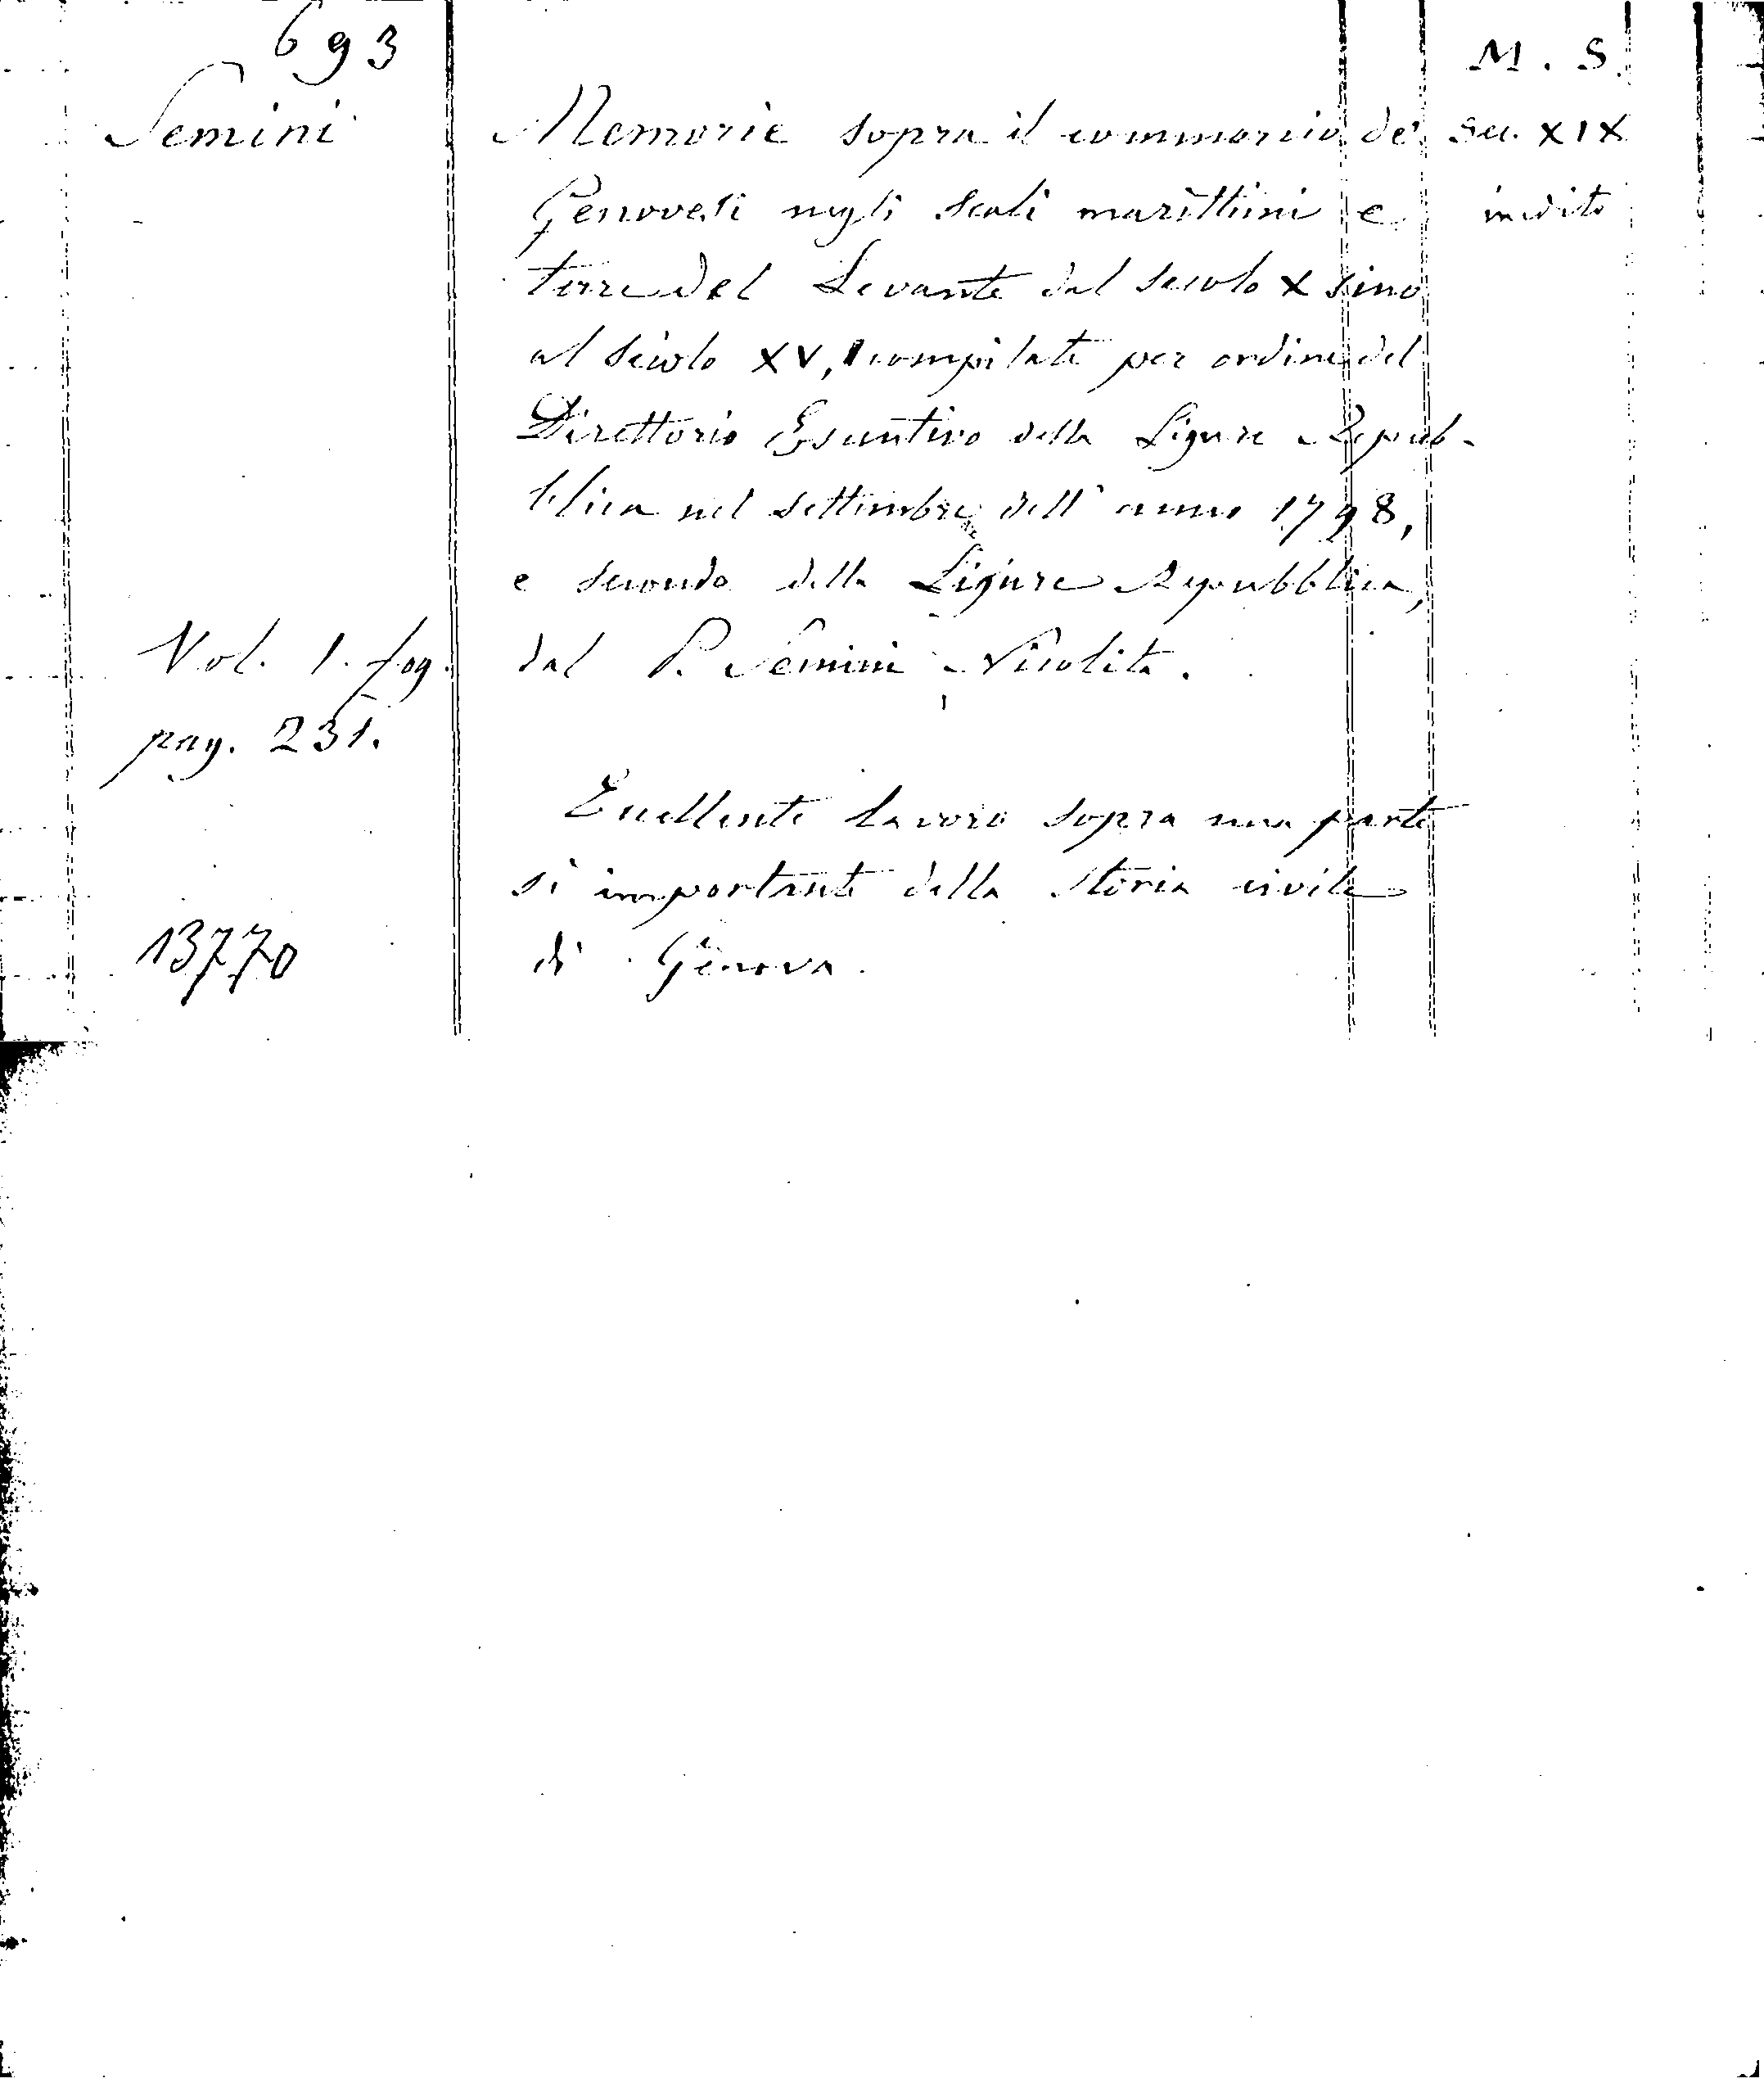 693
M. S.
Semini
Memorie sopra il commercio de' sec. XIX
Genovesi negli scali marittimi e inedito
terre del Levante dal secolo X sino
al secolo XV, compilate per ordine del
Direttorio Esecutivo della Ligure Repub-
blica nel settembre dell'anno 1798,
e secondo della Ligure Repubblica,
Vol. 1. fog. dal P. Semini Nicolita.
pag. 231.
Eccellente lavoro sopra una parte
sì importante della storia civile
13770 di Genova.